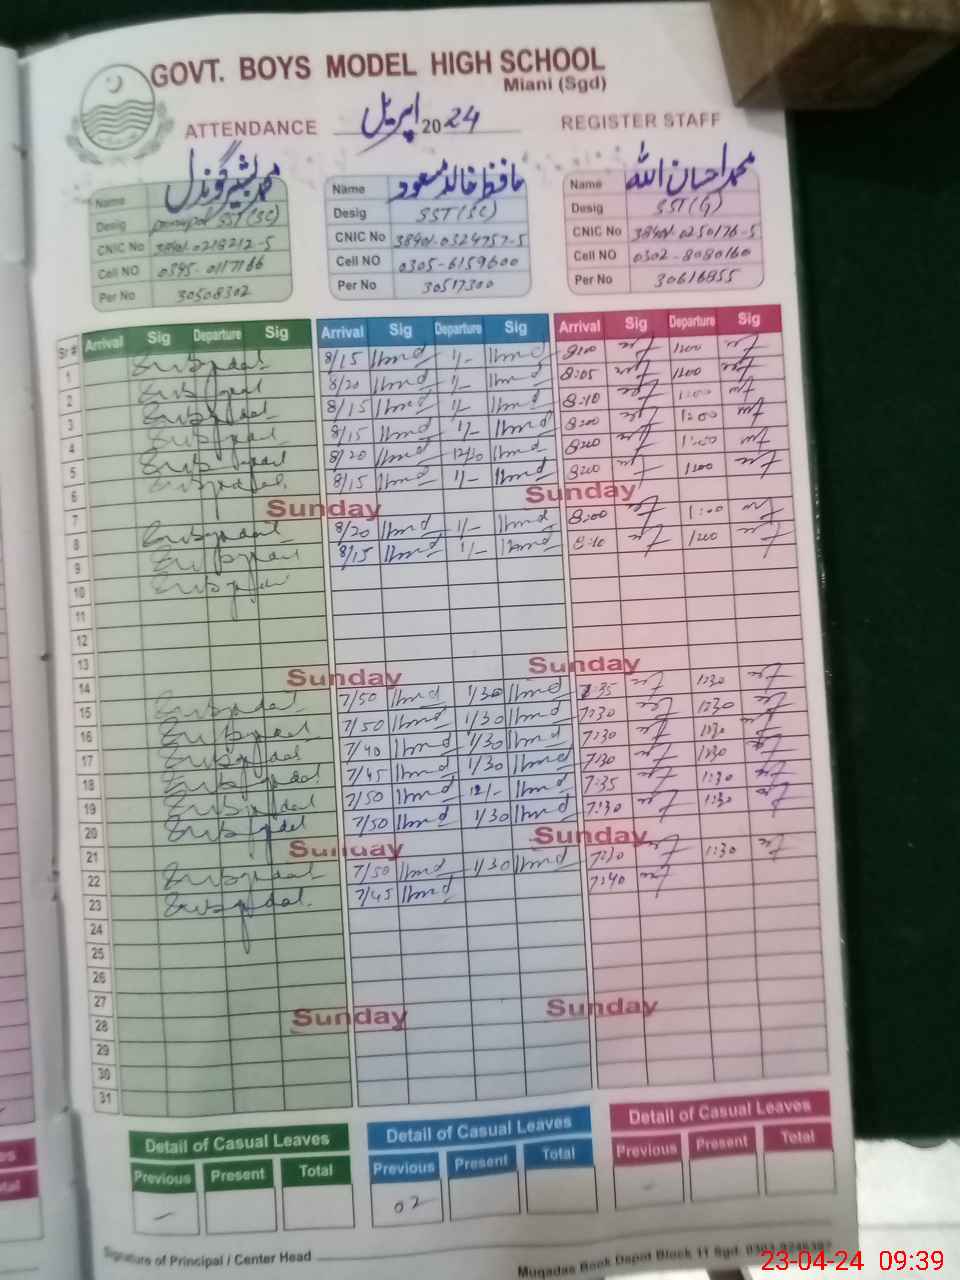 GOVT. BOYS MODEL HIGH SCHOOL
Miani (Sgd)
ATTENDANCE اپریل 2024 REGISTER STAFF
Name محمد بشیر گوندل
Desig principal SST(SC)
CNIC No 38401-0218212-5
Cell NO 0345-0117166
Per No 30508302
Name حافظ خالد مسعود
Desig SST(SC)
CNIC No 38401-0324757-5
Cell NO 0305-6159600
Per No 30517300
Name محمد احسان اللہ
Desig SST(G)
CNIC No 38401-0250176-5
Cell NO 0302-8080160
Per No 30616855
Sr # Arrival Sig Departure Sig Arrival Sig Departure Sig Arrival Sig Departure Sig
1 8/15 1/- 8:00 1:00
2 8/20 1/- 8:05 1:00
3 8/15 1/- 8:10 1:00
4 8/15 1/- 8:00 1:00
5 8/20 12/30 8:00 1:00
6 8/15 1/- 8:00 1:00
7 Sunday Sunday
8 8/20 1/- 8:00 1:00
9 8/15 1/- 8:10 1:00
10
11
12
13
14 Sunday Sunday
15 7/50 1/30 7:35 1:30
16 7/50 1/30 7:30 1:30
17 7/40 1/30 7:30 1:30
18 7/45 1/30 7:30 1:30
19 7/50 12/- 7:35 1:30
20 7/50 1/30 7:30 1:30
21 Sunday Sunday
22 7/50 1/30 7:30 1:30
23 7/45 7:40
24
25
26
27
28 Sunday Sunday
29
30
31
Detail of Casual Leaves Detail of Casual Leaves Detail of Casual Leaves
Previous Present Total Previous Present Total Previous Present Total
– 02 –
Signature of Principal / Center Head
Muqadas Book Depot Block 11 Sgd.
23-04-24 09:39